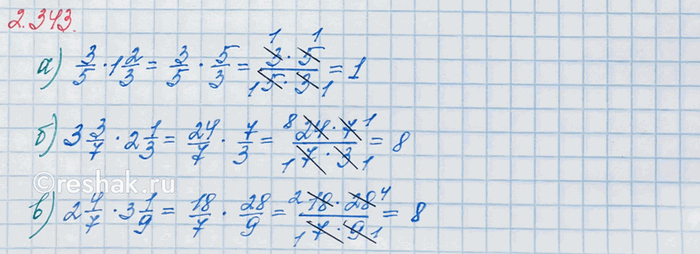 2.343.
а) 3/5 · 1 2/3 = 3/5 · 5/3 = (3 · 5)/(5 · 3) = 1
б) 3 3/7 · 2 1/3 = 24/7 · 7/3 = (24 · 7)/(7 · 3) = 8
©reshak.ru
в) 2 4/7 · 3 1/9 = 18/7 · 28/9 = (18 · 28)/(7 · 9) = 8